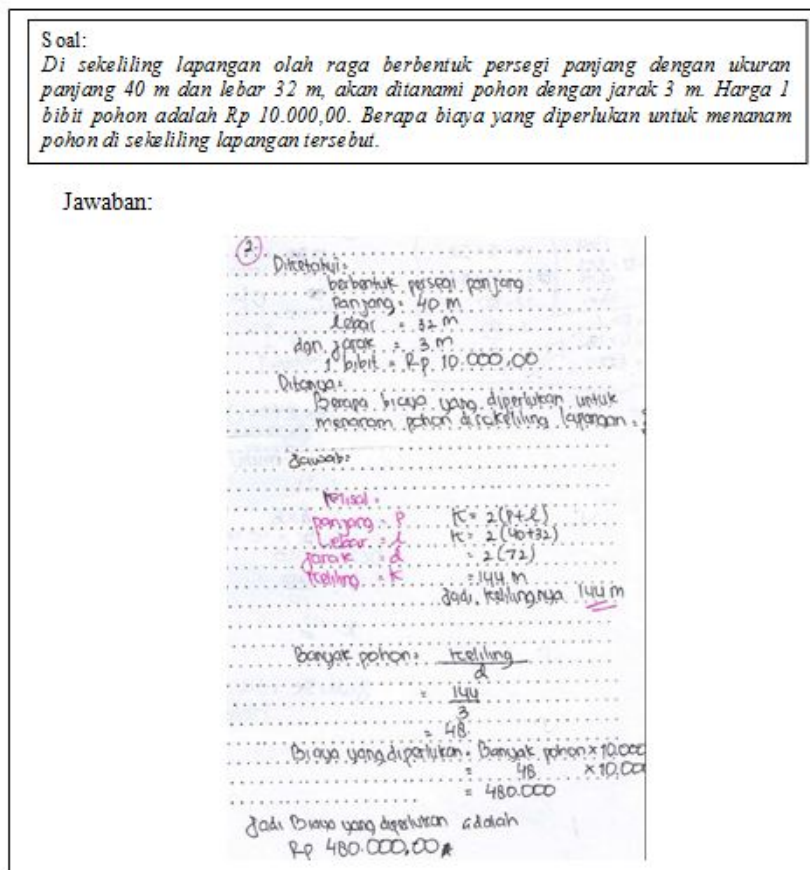 Soal:
Di sekeliling lapangan olah raga berbentuk persegi panjang dengan ukuran
panjang 40 m dan lebar 32 m, akan ditanami pohon dengan jarak 3 m. Harga 1
bibit pohon adalah Rp 10.000,00. Berapa biaya yang diperlukan untuk menanam
pohon di sekeliling lapangan tersebut.
Jawaban:
2.
Diketahui:
berbentuk persegi panjang
Panjang = 40 m
Lebar = 32 m
dgn jarak = 3 m
1 bibit = Rp 10.000,00
Ditanya:
Berapa biaya yang diperlukan untuk
menanam pohon disekeliling lapangan =
Jawab:
Misal:
panjang = P
Lebar = l
jarak = d
keliling = K
K = 2(P+l)
K = 2(40+32)
= 2(72)
= 144 m
Jadi, kelilingnya 144 m
Banyak pohon = keliling
d
= 144
3
= 48
Biaya yang diperlukan = Banyak pohon × 10.000
= 48 × 10.000
= 480.000
Jadi Biaya yang diperlukan adalah
Rp 480.000,00